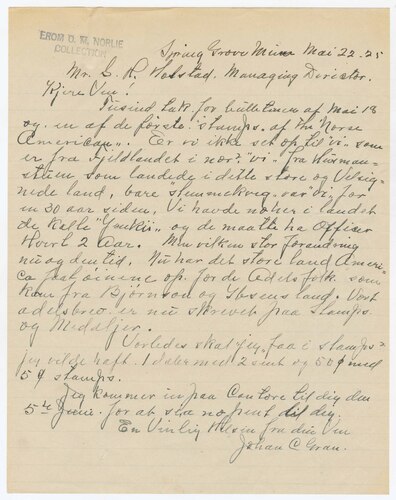 FROM O. M. NORLIE
COLLECTION
Spring Grove Minn Mai 22. 25
Mr. S. H. Holstad. Managing Director.
Kjere Ven!
Tusind tak for bulletinen af Mai 18
og. in af de første "stamps" af the Norse
American". Er vi ikke set op til "vi" som
er fra Fjeldlandet i nor? "vi" fra Husman-
stuen som landede i dette store og Velsig-
nede land, bare "Stummekveg" var vi for
in 30 aar siden, Vi havde noher i landet
de kalte "Inkin" og de maatte ha Officer
Hoert 2 Aar. Men vilken stor forandring
nu og den tid. Nu har det store land Ameri-
ca faat øinene op for de Adelsfolk som
kom fra Bjørnson og Ibsens land. Vort
adelsbrev er nu skrevet paa Stamps
og Medaljer.
Vorledes skal jeg faa i stamps-
jeg vilde haft 1 daler med 2 sent og 50¢ med
5¢ stamps.
Jeg kommer in paa Contore til dig den
5te Juni. for at sla no pent til dig.
En Vinlig Hilsen fra din Ven
Johan C Gran.